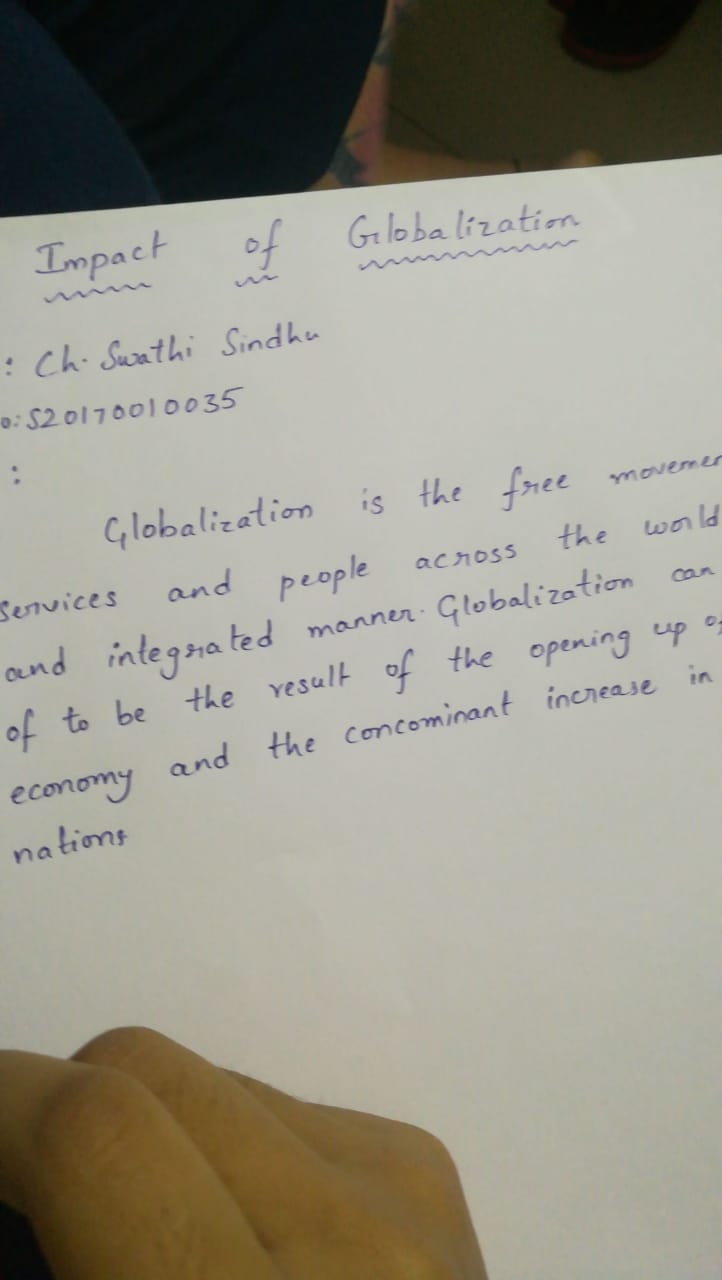 Impact of Globalization
: Ch. Swathi Sindhu
o: S20170010035
:
Globalization is the free movemen
services and people across the world
and integrated manner. Globalization can
of to be the result of the opening up of
economy and the concominant increase in
nations